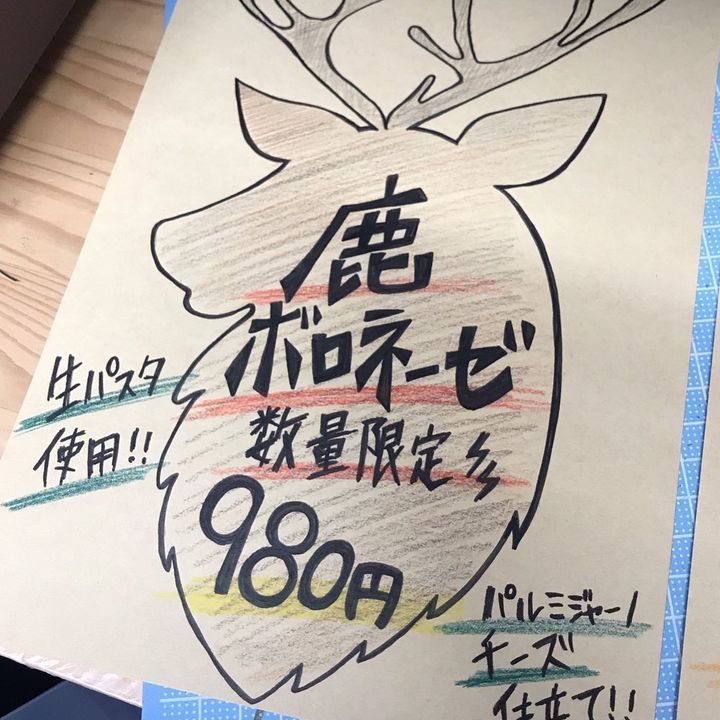 鹿
ボロネーゼ
数量限定
980円
生パスタ
使用!!
パルミジャーノ
チーズ
仕立て!!